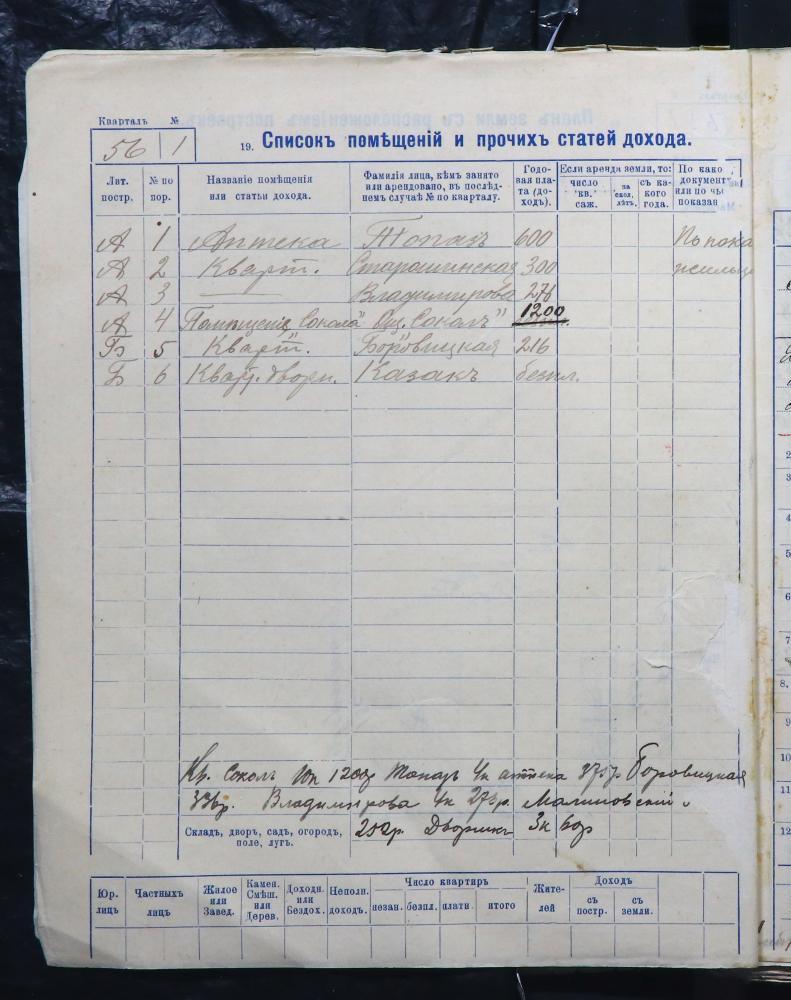 Кварталъ №
56 1
19. Списокъ помѣщеній и прочихъ статей дохода.
Лит. постр. № по пор. Названіе помѣщенія или статьи дохода. Фамилія лица, кѣмъ занято или арендовано, въ послѣднемъ случаѣ № по кварталу. Годовая плата (доходъ). Если аренда земли, то: число кв. саж. на скол. лѣтъ. съ какого года. По како документ или по чь показан
А 1 Аптека Топазъ 600 По пока
А 2 Кварт. Старошинская 300 жильц
А 3 — Владимирова 276
А 4 Помѣщеніе „Сокола" Общ. „Соколъ" 1200
Гб 5 Кварт. Боровицкая 216
Б 6 Кварт. дворн. Казакъ безпл.
Кр. Соколъ 10к 1200р Топазъ 4к аптека 375р Боровицкая
336р. Владимирова 4к 275р. Малиновскій
Складъ, дворъ, садъ, огородъ, 252р. Дворникъ 3к 60р
поле, лугъ.
Юр. лицъ Частныхъ лицъ Жилое или Завед. Камен. Смѣш. или Дерев. Доходн. или Бездох. Неполн. доходъ. Число квартиръ незан. безпл. платн. итого Жителей Доходъ съ постр. съ земли.